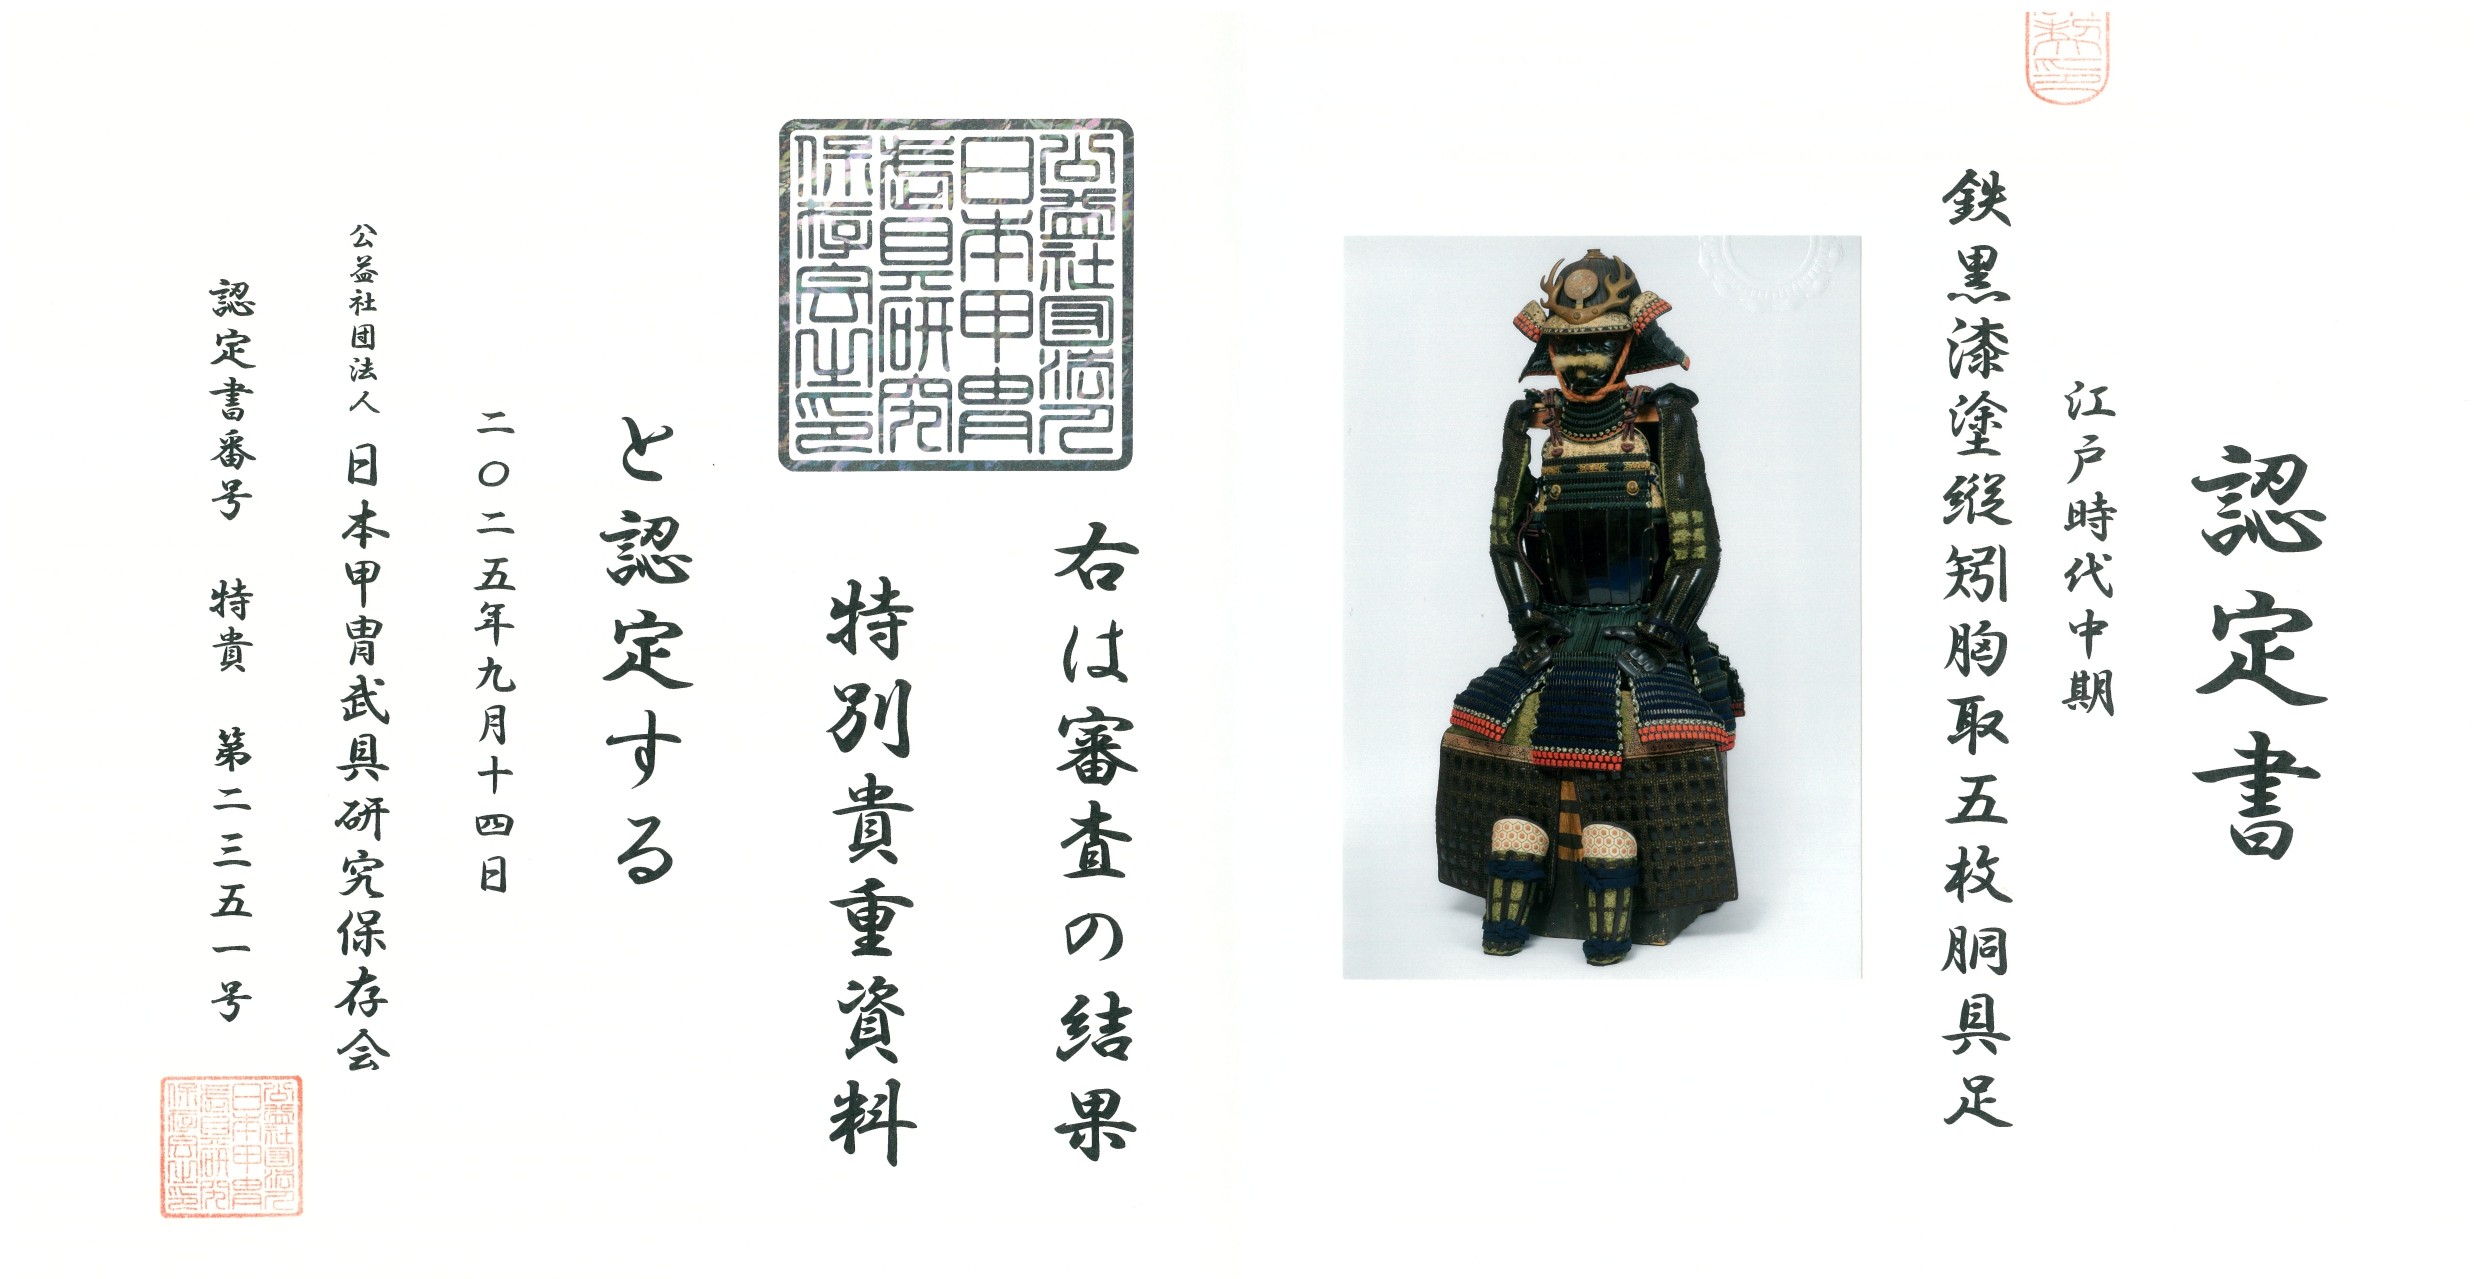 認定書
江戸時代中期
鉄黒漆塗縦矧胸取五枚胴具足
右は審査の結果
特別貴重資料
と認定する
二〇二五年九月十四日
公益社団法人 日本甲冑武具研究保存会
認定書番号 特貴 第二三五一号
公益社団法人
日本甲冑
武具研究
保存会之印